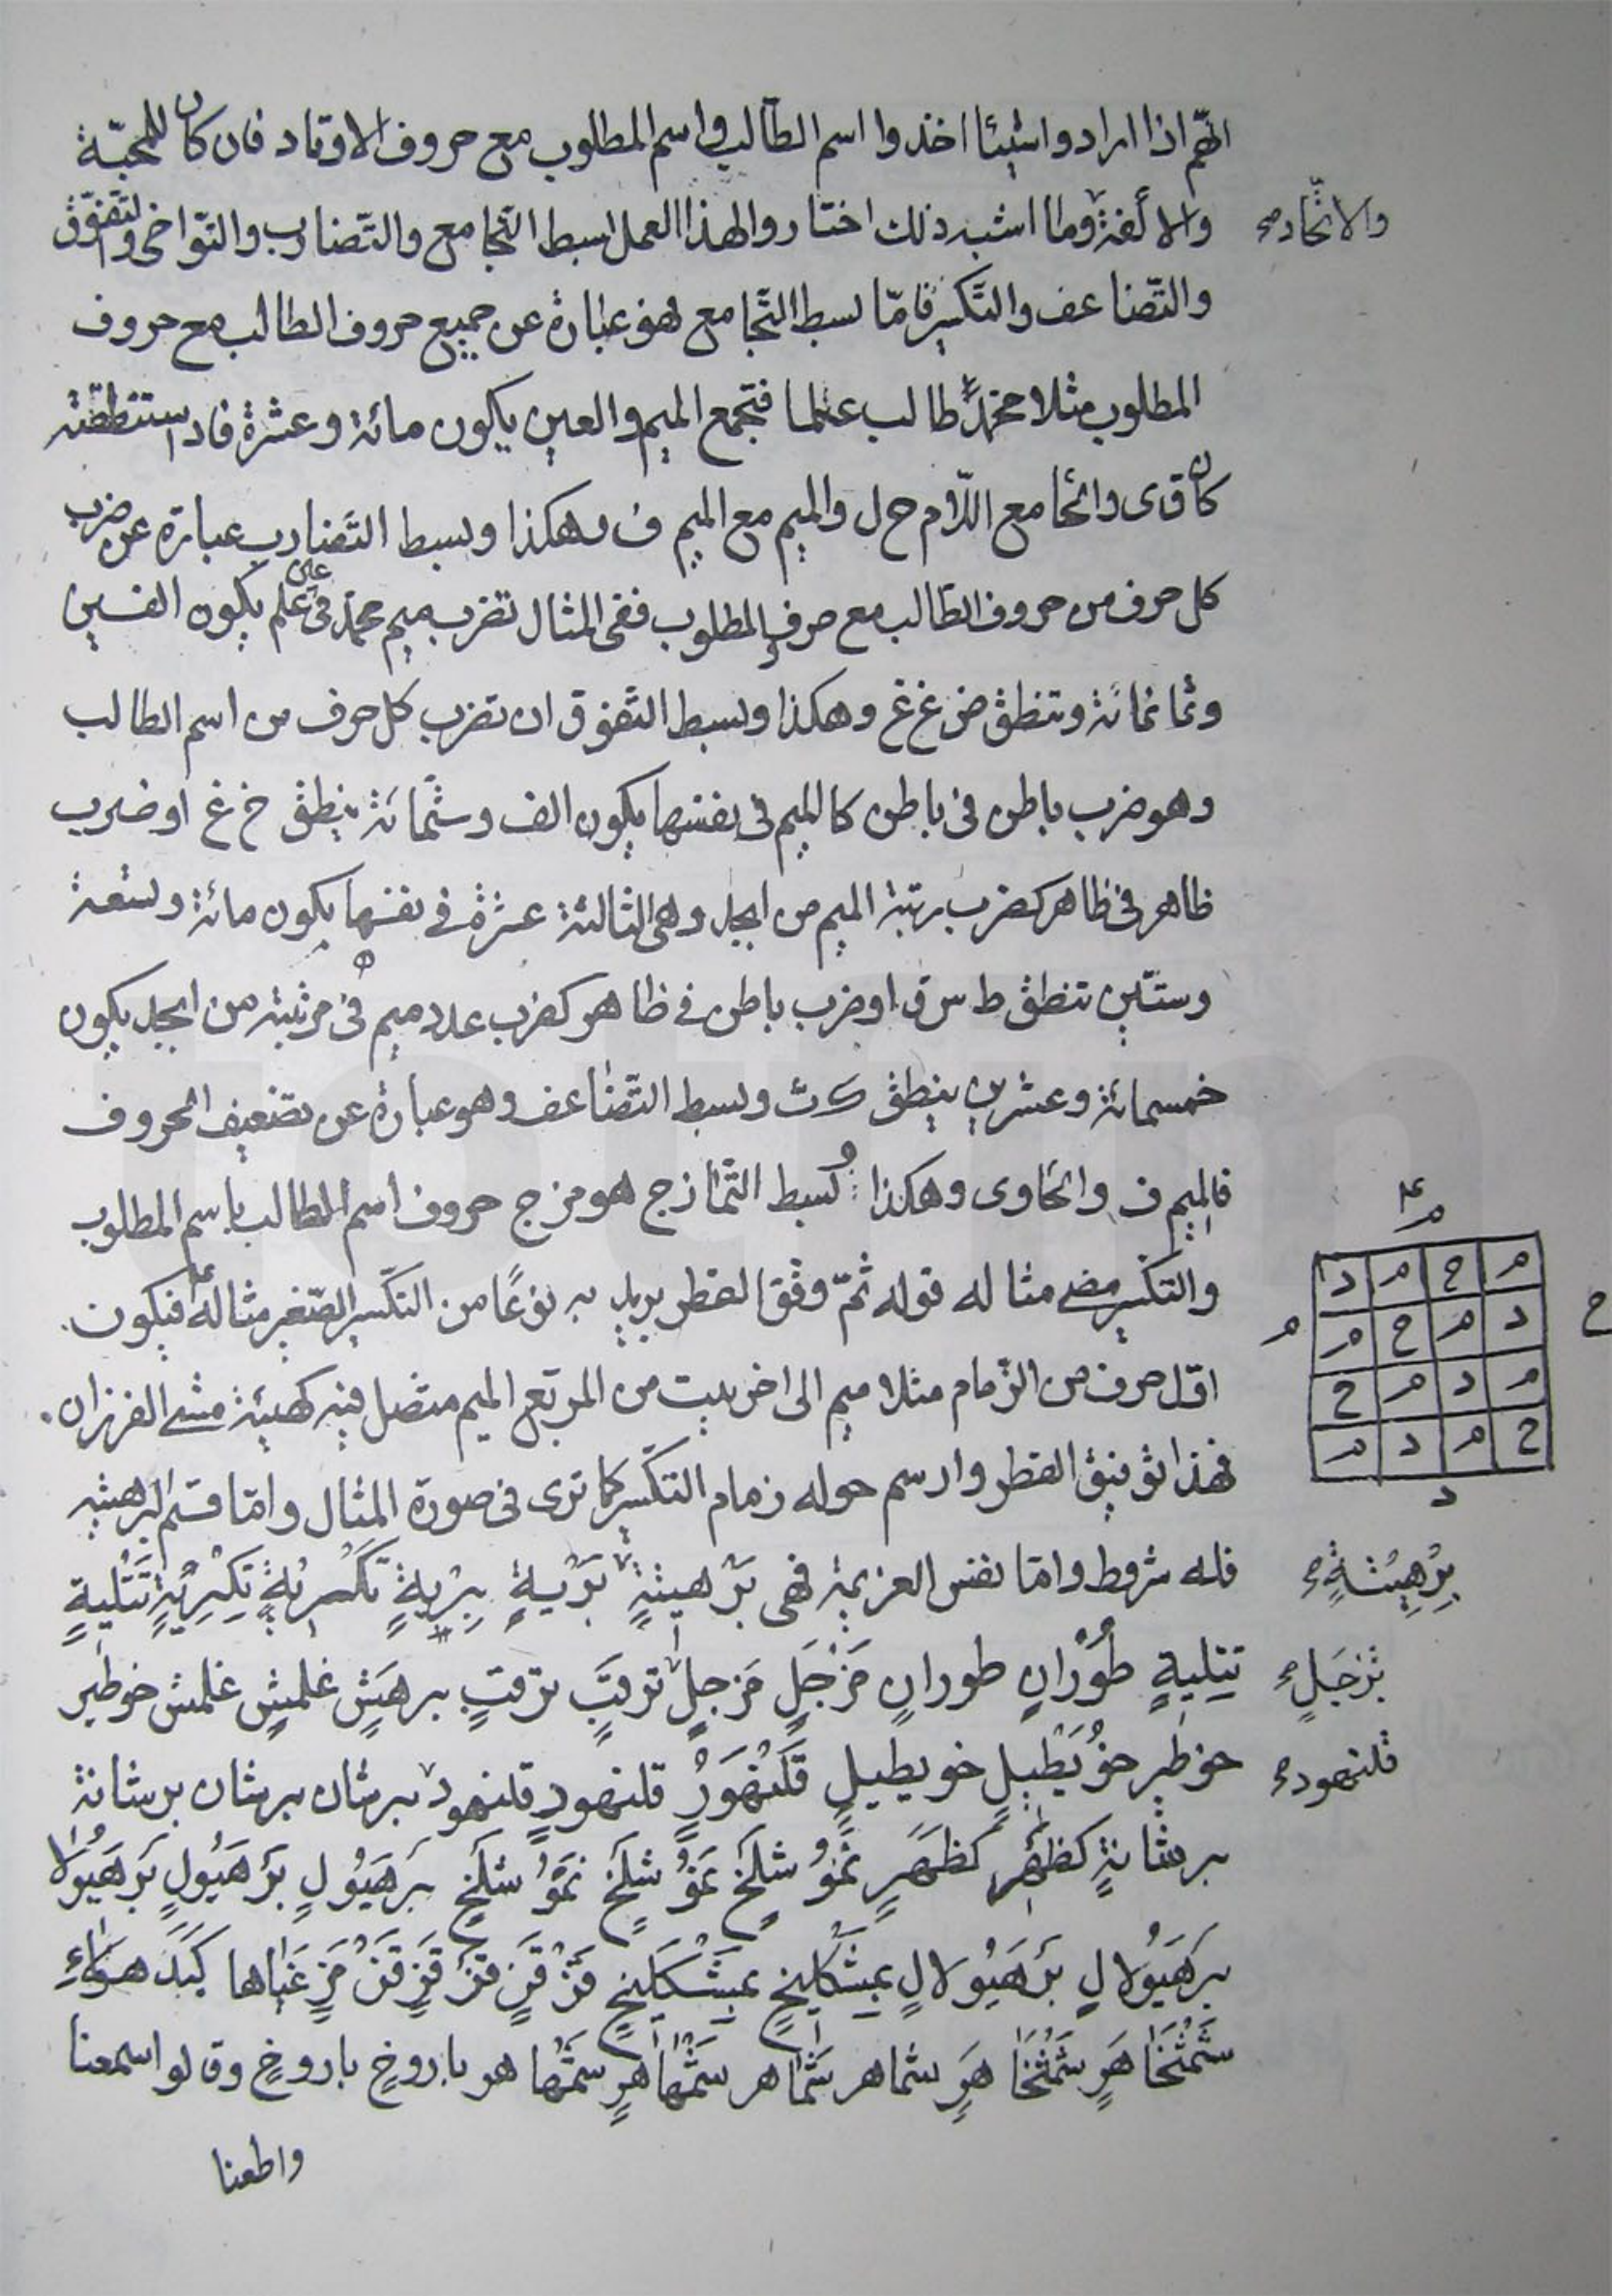 انهم اذا ارادوا شيئا اخذوا اسم الطالب واسم المطلوب مع حروف الاوتاد فان كان للمحبّة
والألفة وما اشبه ذلك اختاروا لهذا العمل بسط التجامع والتضارب والتواخى والتفوّق
والاتّحاد
والتّضاعف والتكسير فامّا بسط التّجامع فهو عبارة عن جميع حروف الطالب مع حروف
المطلوب مثلا محمد طالب علما فتجمع الميم والعين يكون مائة وعشرة فاد استنطقته
كان ق ى والحا مع اللّام ح ل والميم مع الميم ف وهكذا وبسط التّضارب عبارة عن ضرب
كل حرف من حروف الطالب مع حرف المطلوب ففى المثال تضرب ميم محمد فى عين علم يكون الفين
وثمانمائة وتنطق ض غ غ وهكذا وبسط التّفوق ان تضرب كل حرف من اسم الطالب
وهو ضرب باطن فى باطن كالميم فى نفسها يكون الف وستمائة ينطق خ غ او ضرب
ظاهر فى ظاهر كضرب رتبة الميم من ابجد وهى الثالثة عشرة فى نفسها يكون مائة وتسعة
وستّين تنطق ط س ق او ضرب باطن فى ظاهر كضرب عدد ميم فى مرتبته من ابجد يكون
خمسمائة وعشرين ينطق ك ث وبسط التّضاعف وهو عبارة عن تضعيف الحروف
فالميم ف والحا وى وهكذا وبسط التّمازج هو مزج حروف اسم الطالب باسم المطلوب
والتكسير مضى مثاله قوله ثمّ وفق القطر يريد به نوعًا من التكسير الصّغير مثاله فيكون
اوّل حرف من الزّمام مثلا ميم الى اخر بيت من المربّع الميم متصل فيه كهيئة مشى الفرزان
فهذا توفيق القطر وارسم حوله زمام التكسير كما ترى فى صورة المثال وامّا قسم البرهتيه
م
م ح م د
د م ح م
م د م ح
ح م د م
ح
م
د
فله شروط وامّا نفس العزيمة فهى بَرْهيتيةٍ بَرْيةٍ بِرِيةٍ تتْليةٍ
بِرْهِيْتةٍ
تتِليةٍ طُوْرٰانٍ طورانٍ مَزْجَلٍ مَزجلٍ ترقبَّ ترقبٍ برهَشٍ غلمشٍ غلمش خوطير
بَزْجَلٍ
خوطير خُوْيَطْيلٍ خويطيلٍ قَلَنْهَوَرٌ قلنهودٍ قلنهود برشان برشان برشانة
قلنهود
برشانةٍ كظهٍر كَظَهَرٍ نَمُوْ شلَخٍ نَمَوُ شلَخٍ نَمُوُ شلَخٍ بَرهَيُولٍ بَرْهَيُولٍ بَرْهَيُولا
بَرهَيُولالٍ بَرْهَيُولالٍ بَشْكَيلَخٍ بَشَكَيلَخٍ قَزْ قَزٍ قزْ قَزٍ قَزْ مَزٍ غَيٰاها كَيَدَ هَوَلاءِ
شَمْخَاهَرٍ شَمْخَاهَرٍ شماهر شَمٰاهر شَمْهٰاهرٍ سمَهٰا هر باروخٍ باروخٍ وقالوا سمعنا
واطعنا